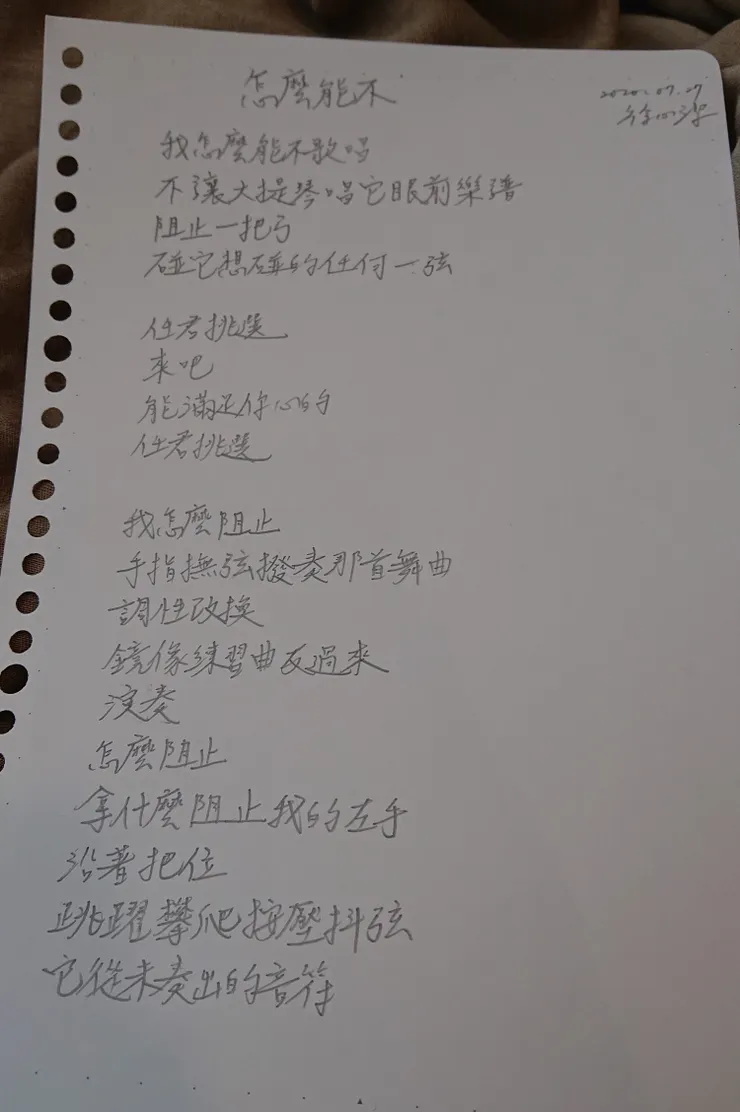 怎麼能不
2020.07.07
徐心澤
我怎麼能不歌唱
不讓大提琴唱它眼前樂譜
阻止一把弓
碰它想碰的任何一弦
任君挑選
來吧
能滿足你心的
任君挑選
我怎麼阻止
手指撫弦撥奏那首舞曲
調性改換
鏡像練習曲反過來
演奏
怎麼阻止
拿什麼阻止我的左手
沿著把位
跳躍攀爬按壓抖弦
它從未奏出的音符